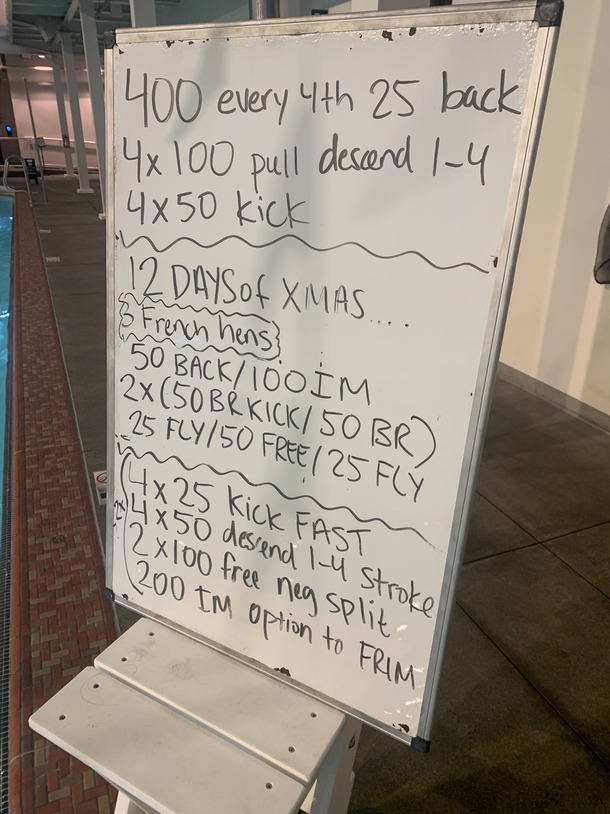 400 every 4th 25 back
4x100 pull descend 1-4
4x50 kick
12 DAYS of XMAS....
3 French hens
50 BACK/100 IM
2x(50 BR KICK/50 BR)
25 FLY/50 FREE/25 FLY
2x
4x25 kick FAST
4x50 descend 1-4 stroke
2x100 free neg split
200 IM option to FRIM